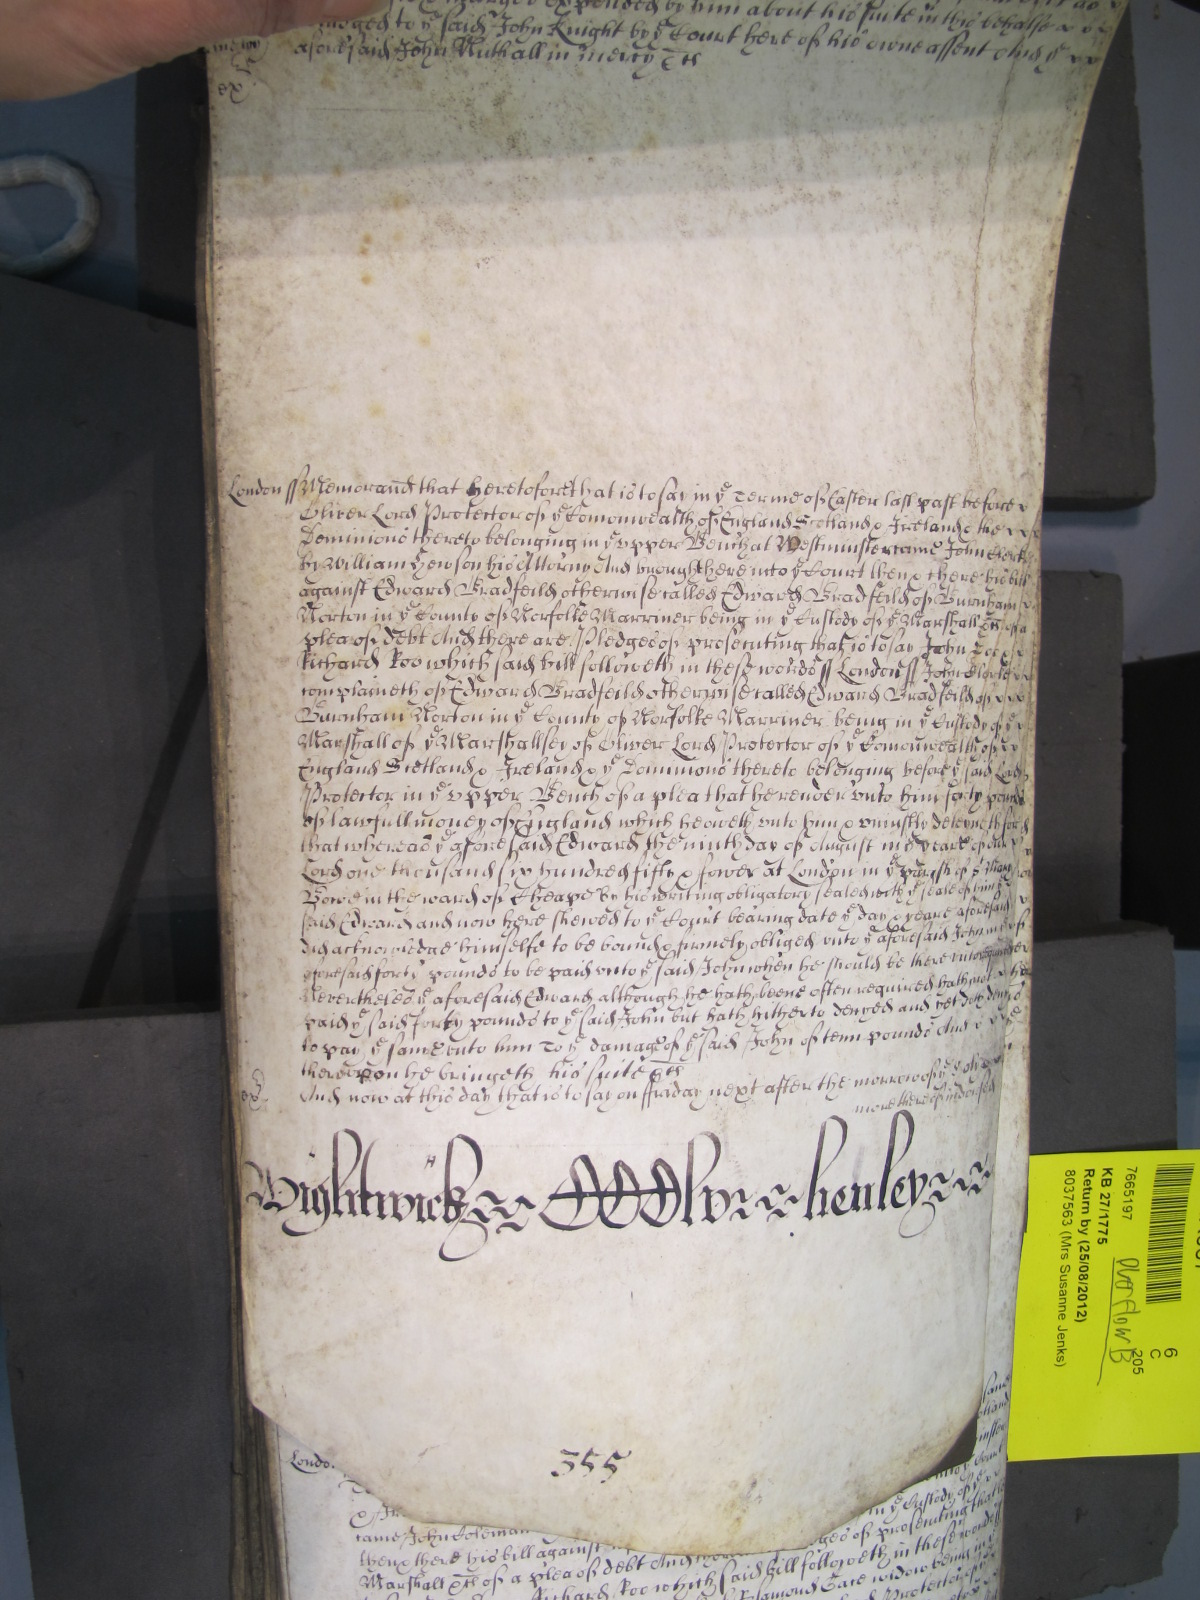 expended by him about his suite in this behalfe
said John Knight by yᵉ Court here of his owne assent And yᵉ
aforesaid John Nuthall in mercy &c
ex
London ss Memorand that heretofore that is to say in yᵉ Terme of Easter last past before
Oliver Lord Protector of yᵉ Comonwealth of England Scotland & Ireland & the
Dominions thereto belonging in yᵉ upper Bench at Westminster came John
by William Hewson his Attorny And brought here into yᵉ Court then & there his bill
against Edward Bradfeild otherwise called Edward Bradfeild of Burnham
Norton in yᵉ County of Norfolke Marriner being in yᵉ Custody of yᵉ Marshall &c of a
plea of debt And there are Pledges of prosecuting that is to say John Doe &
Richard Roo which said bill followeth in these words ss London ss John
complaineth of Edward Bradfeild otherwise called Edward Bradfeild of
Burnham Norton in yᵉ County of Norfolke Marriner being in yᵉ Custody of yᵉ
Marshall of yᵉ Marshallsey of Oliver Lord Protector of yᵉ Comonwealth of
England Scotland & Ireland & yᵉ Dominions thereto belonging before yᵉ said Lord
Protector in yᵉ upper Bench of a plea that he render unto him forty pounds
of lawfull money of England which he oweth unto him & uniustly deteyneth for
that whereas yᵉ aforesaid Edward the ninth day of August in yᵉ yeare of our
Lord one thousand six hundred fifty & fower at London in yᵉ parish of Sᵗ Mary
Bowe in the ward of Cheape by his writing obligatory sealed with yᵉ seale of him yᵉ
said Edward and now here shewed to yᵉ Court bearing date yᵉ day & yeare aforesaid
did acknowledge himselfe to be bound & firmely obliged unto yᵉ aforesaid John in yᵉ
aforesaid forty pounds to be paid unto yᵉ said John when he should be thereunto required
Neverthelesse yᵉ aforesaid Edward although he hath beene often required hath not
paid yᵉ said forty pounds to yᵉ said John but hath hitherto denyed and yet doth deny
to pay yᵉ same unto him To yᵉ damage of yᵉ said John of tenn pounds And
thereupon he bringeth his suite &c
ex And now at this day that is to say on ffriday next after the morrow of yᵉ
more thereof indorsed
Wightwick CCClv henley
355
7665197
KB 27/1775
Return by (25/08/2012)
8037563 (Mrs Susanne Jenks)
Overflow B
6
C
205
Londo
came John Coleman
then & there his bill against
Marshall &c of a plea of debt And
in yᵉ Custody of yᵉ
of prosecuting that is
Richard Roo which said bill followeth in these words
widow being in